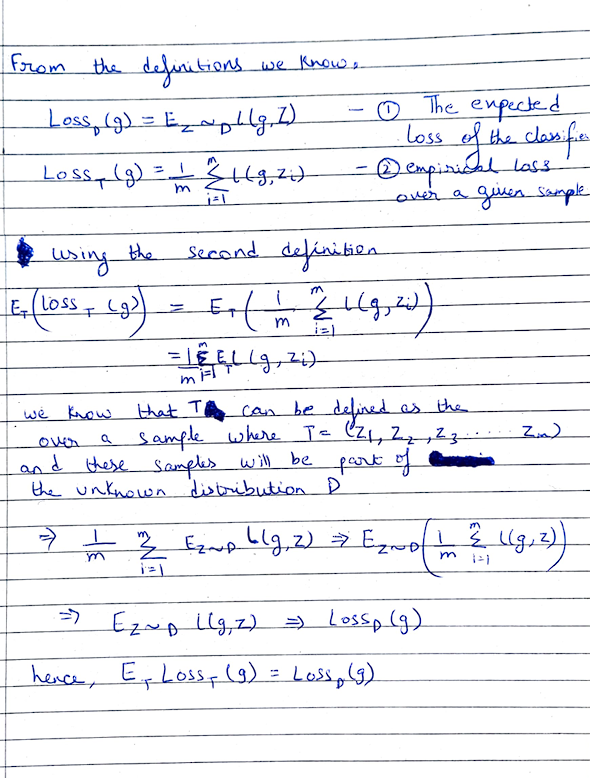 From the definitions we know,
Loss_D(g) = E_{Z∼D} l(g,Z) — ① The expected loss of the classifier
Loss_T(g) = 1/m Σ_{i=1}^{m} l(g,z_i) — ② empirical loss over a given sample
using the second definition
E_T(Loss_T(g)) = E_T(1/m Σ_{i=1}^{m} l(g,z_i))
= 1/m Σ_{i=1}^{m} E_T l(g,z_i)
we know that T can be defined as the
over a sample where T = (z_1, z_2, z_3 ...... z_m)
and these samples will be part of
the unknown distribution D
⇒ 1/m Σ_{i=1}^{m} E_{Z∼D} l(g,z) ⇒ E_{Z∼D}(1/m Σ_{i=1}^{m} l(g,z))
⇒ E_{Z∼D} l(g,z) ⇒ Loss_D(g)
hence, E_T Loss_T(g) = Loss_D(g)